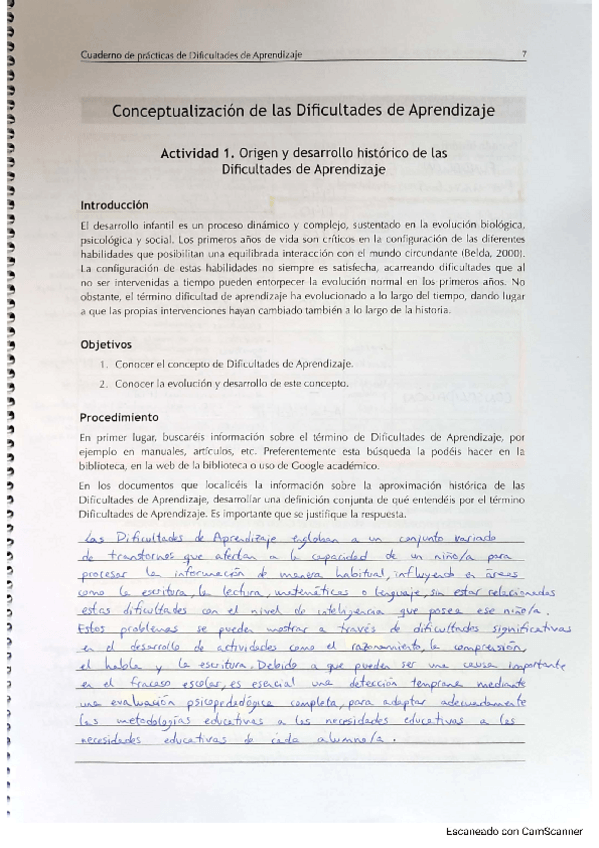 Cuaderno de prácticas de Dificultades de Aprendizaje 7
Conceptualización de las Dificultades de Aprendizaje
Actividad 1. Origen y desarrollo histórico de las
Dificultades de Aprendizaje
Introducción
El desarrollo infantil es un proceso dinámico y complejo, sustentado en la evolución biológica,
psicológica y social. Los primeros años de vida son críticos en la configuración de las diferentes
habilidades que posibilitan una equilibrada interacción con el mundo circundante (Belda, 2000).
La configuración de estas habilidades no siempre es satisfecha, acarreando dificultades que al
no ser intervenidas a tiempo pueden entorpecer la evolución normal en los primeros años. No
obstante, el término dificultad de aprendizaje ha evolucionado a lo largo del tiempo, dando lugar
a que las propias intervenciones hayan cambiado también a lo largo de la historia.
Objetivos
1. Conocer el concepto de Dificultades de Aprendizaje.
2. Conocer la evolución y desarrollo de este concepto.
Procedimiento
En primer lugar, buscaréis información sobre el término de Dificultades de Aprendizaje, por
ejemplo en manuales, artículos, etc. Preferentemente esta búsqueda la podéis hacer en la
biblioteca, en la web de la biblioteca o uso de Google académico.
En los documentos que localicéis la información sobre la aproximación histórica de las
Dificultades de Aprendizaje, desarrollar una definición conjunta de qué entendéis por el término
Dificultades de Aprendizaje. Es importante que se justifique la respuesta.
Las Dificultades de Aprendizaje engloban a un conjunto variado
de trastornos que afectan a la capacidad de un niño/a para
procesar la información de manera habitual, influyendo en áreas
como la escritura, la lectura, matemáticas o lenguaje, sin estar relacionadas
estas dificultades con el nivel de inteligencia que posea ese niño/a.
Estos problemas se pueden mostrar a través de dificultades significativas
en el desarrollo de actividades como el razonamiento, la comprensión,
el habla y la escritura. Debido a que pueden ser una causa importante
en el fracaso escolar, es esencial una detección temprana mediante
una evaluación psicopedagógica completa, para adaptar adecuadamente
las metodologías educativas a las necesidades educativas a las
necesidades educativas de cada alumno/a.
Escaneado con CamScanner